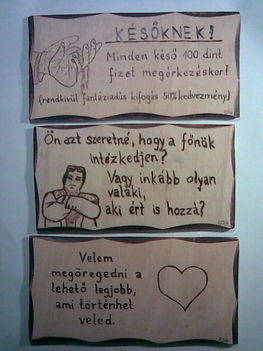 KÉSŐKNEK!
Minden késő 100 dint
fizet megérkezéskor!
(rendkívül fantáziadús kifogás 50% kedvezmény)
Ön azt szeretné, hogy a főnök
intézkedjen?
Vagy inkább olyan
valaki,
aki ért is hozzá?
Velem
megöregedni a
lehető legjobb,
ami történhet
veled.